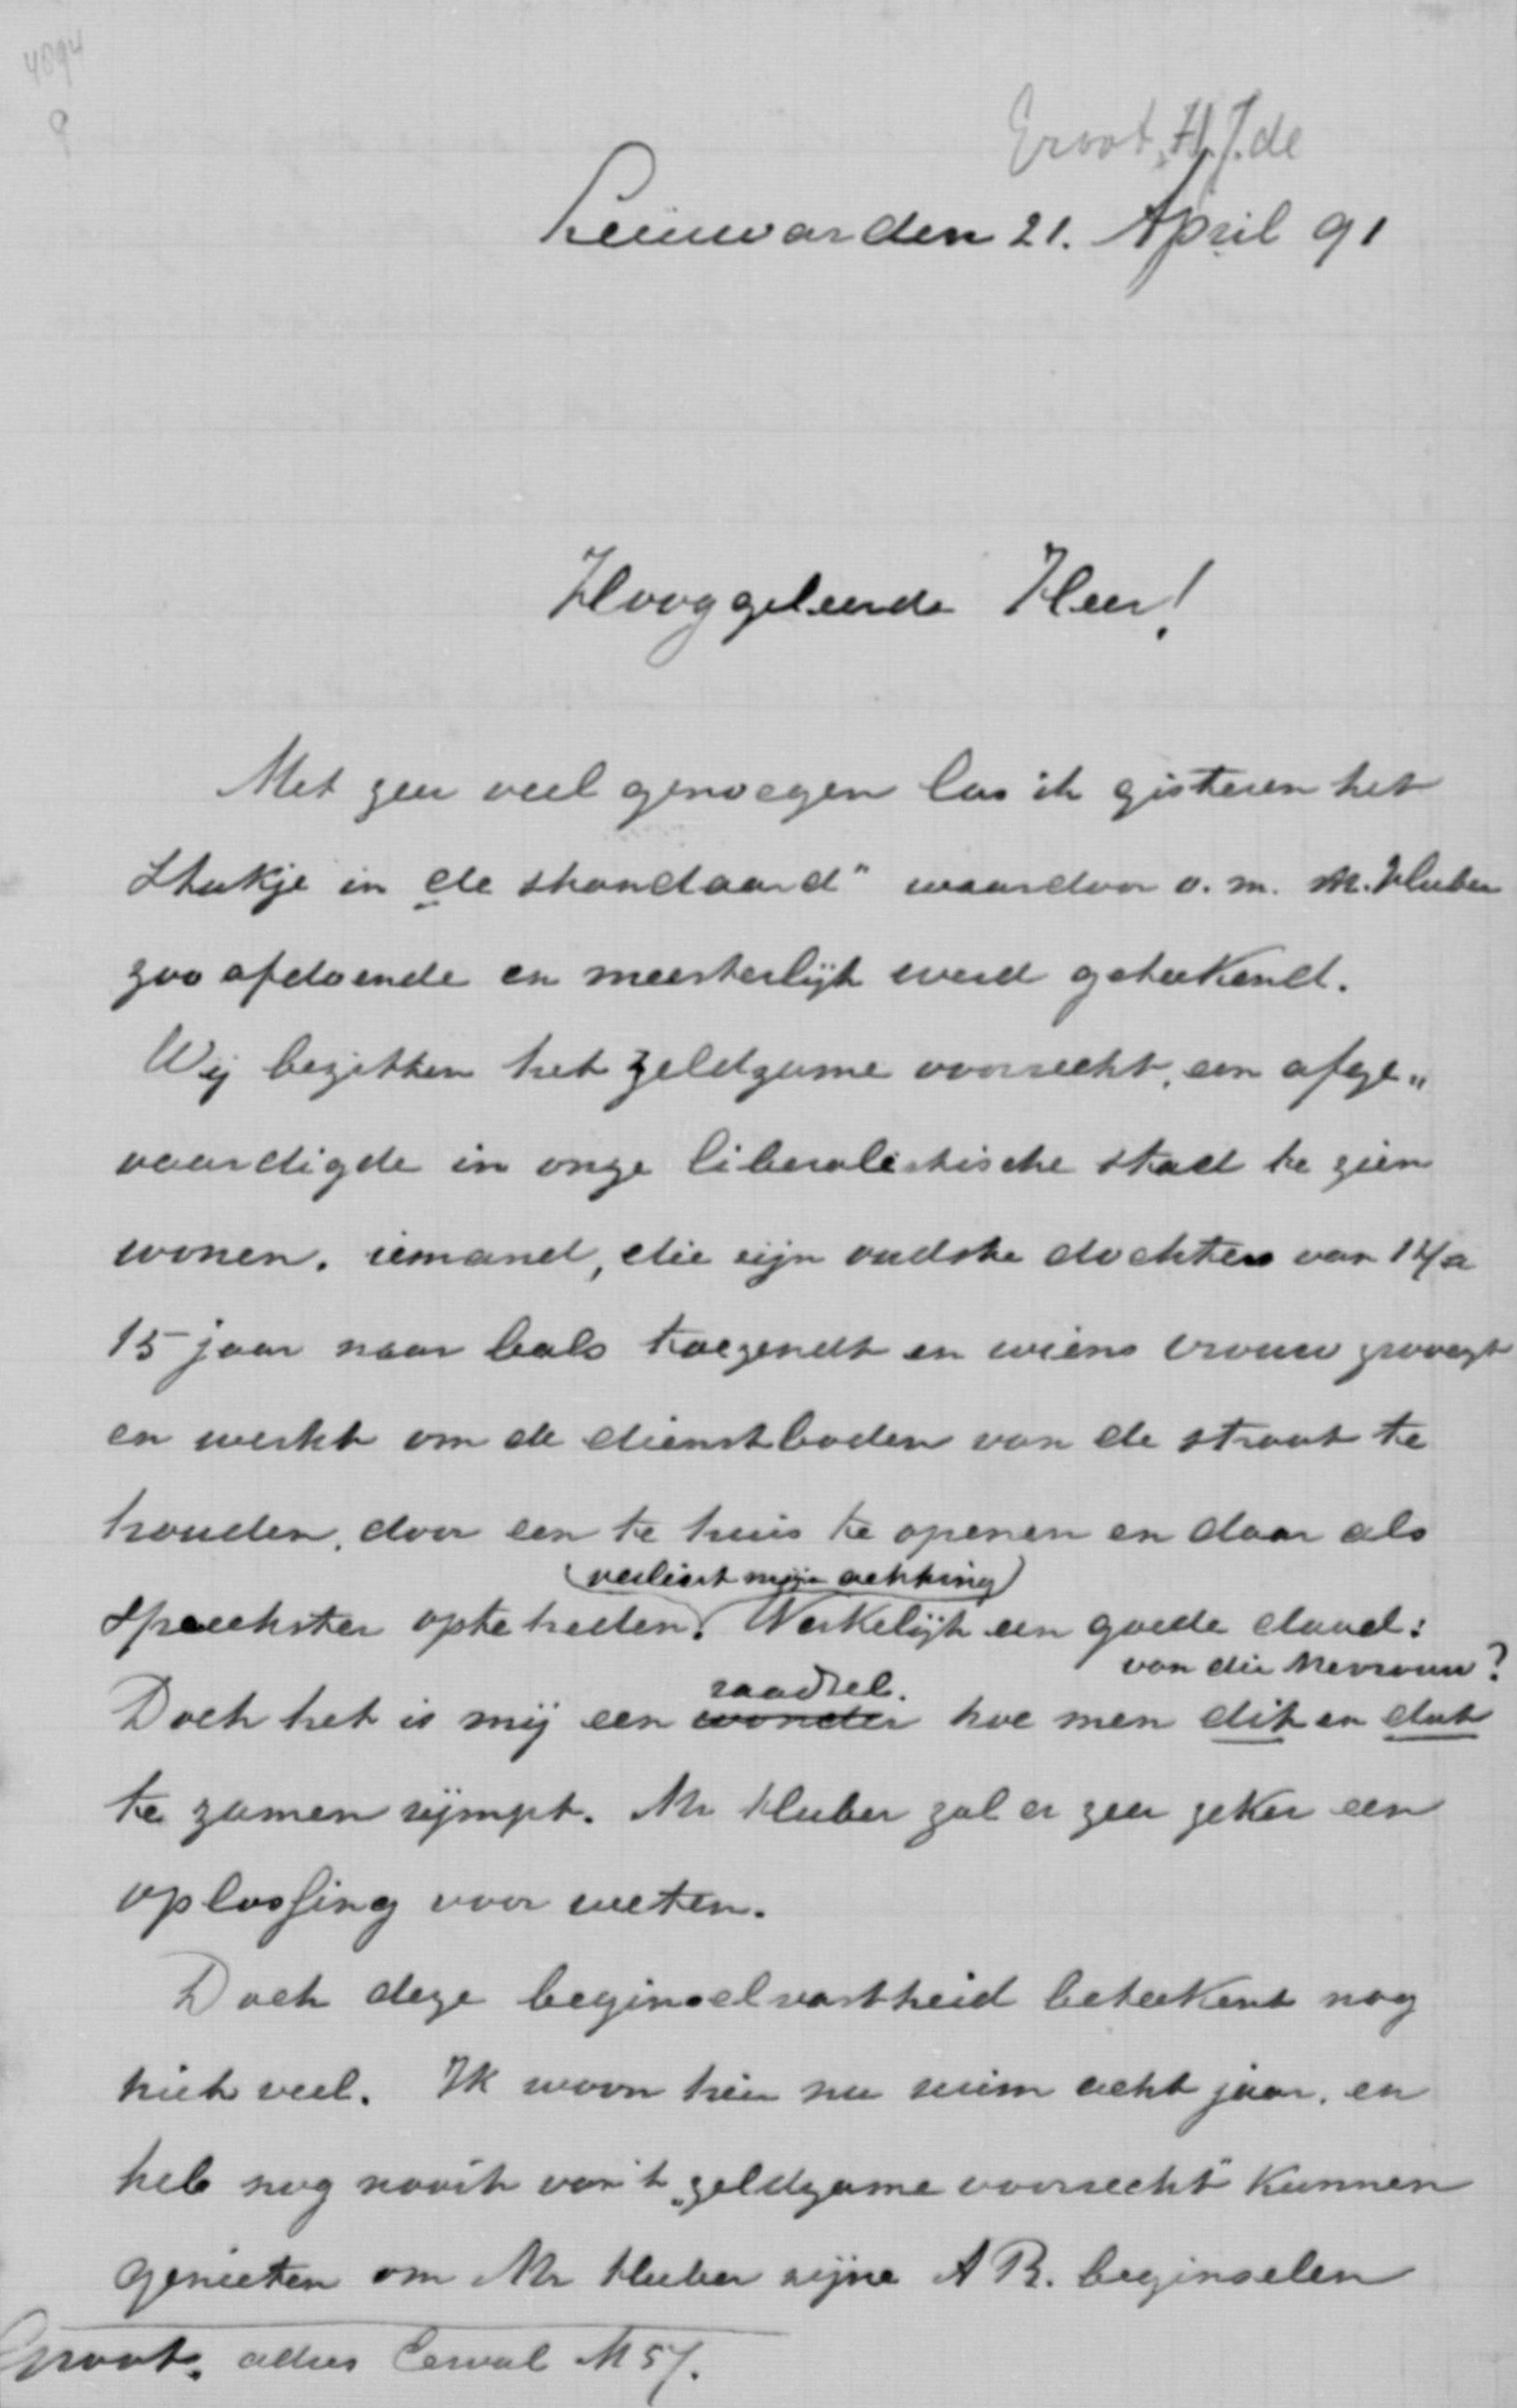 4894
9
Groot, H.J. de
Leeuwarden 21. April 91
Hooggeleerde Heer!
Met zeer veel genoegen las ik gisteren het
Stukje in „de standaard" waardoor o. m. Mr. Huber
zoo afdoende en meesterlijk werd geteekend.
Wij bezitten het zeldzame voorrecht, een afge„
vaardigde in onze liberalistische stad te zien
wonen. iemand, die zijn oudste dochters van 14 a
15 jaar naar bals toezendt en wiens vrouw zwoegt
en werkt om de dienstboden van de straat te
houden, door een te huis te openen en daar als
(verdient mijn achting)
Spreekster opte treden. Werkelijk een goede daad:
van die Mevrouw?
raadsel.
Doch het is mij een wonder hoe men dit en dat
te zamen rijmpt. Mr Huber zal er zeer zeker een
oplossing voor weten.
Doch deze beginselvastheid beteekent nog
niet veel. Ik woon hier nu ruim acht jaar, en
heb nog nooit van 't „zeldzame voorrecht" kunnen
genieten om Mr Huber zijne A R. beginselen
Groot. adres M 57.